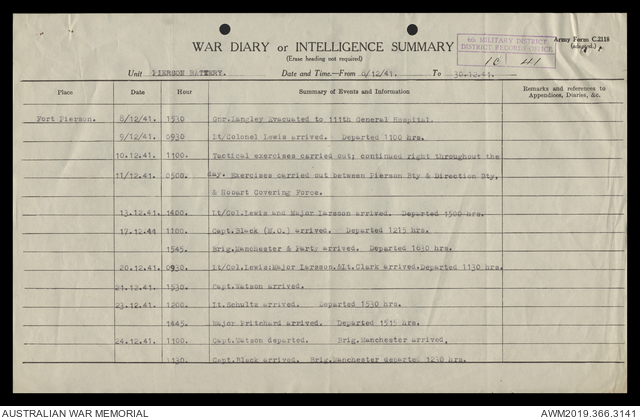 6th MILITARY DISTRICT
DISTRICT RECORDS OFFICE
Army Form C.2118
(adapted)
WAR DIARY or INTELLIGENCE SUMMARY
(Erase heading not required)
Unit PIERSON BATTERY. Date and Time.—From 8/12/41. To 30.12.41.
Place Date Hour Summary of Events and Information Remarks and references to Appendices, Diaries, &c.
Fort Pierson. 8/12/41. 1530 Gnr.Langley Evacuated to 111th General Hospital.
9/12/41. 0930 Lt/Colonel Lewis arrived. Departed 1100 hrs.
10.12.41. 1100. Tactical exercises carried out; continued right throughout the
11/12.41. 0500. day. Exercises carried out between Pierson Bty & Direction Bty,
& Hobart Covering Force.
13.12.41. 1400. Lt/Col.Lewis and Major Larsson arrived. Departed 1500 hrs.
17.12.44 1100. Capt.Black (M.O.) arrived. Departed 1215 hrs.
1545. Brig.Manchester & Party arrived. Departed 1630 hrs.
20.12.41. 0930. Lt/Col.Lewis:Major Larsson.&Lt.Clark arrived.Departed 1130 hrs.
21.12.41. 1530. Capt.Watson arrived.
23.12.41. 1200. Lt.Schultz arrived. Departed 1530 hrs.
1445. Major Pritchard arrived. Departed 1515 hrs.
24.12.41. 1100. Capt.Watson departed. Brig.Manchester arrived.
1130. Capt.Black arrived. Brig.Manchester departed 1230 hrs.
AUSTRALIAN WAR MEMORIAL AWM2019.366.3141